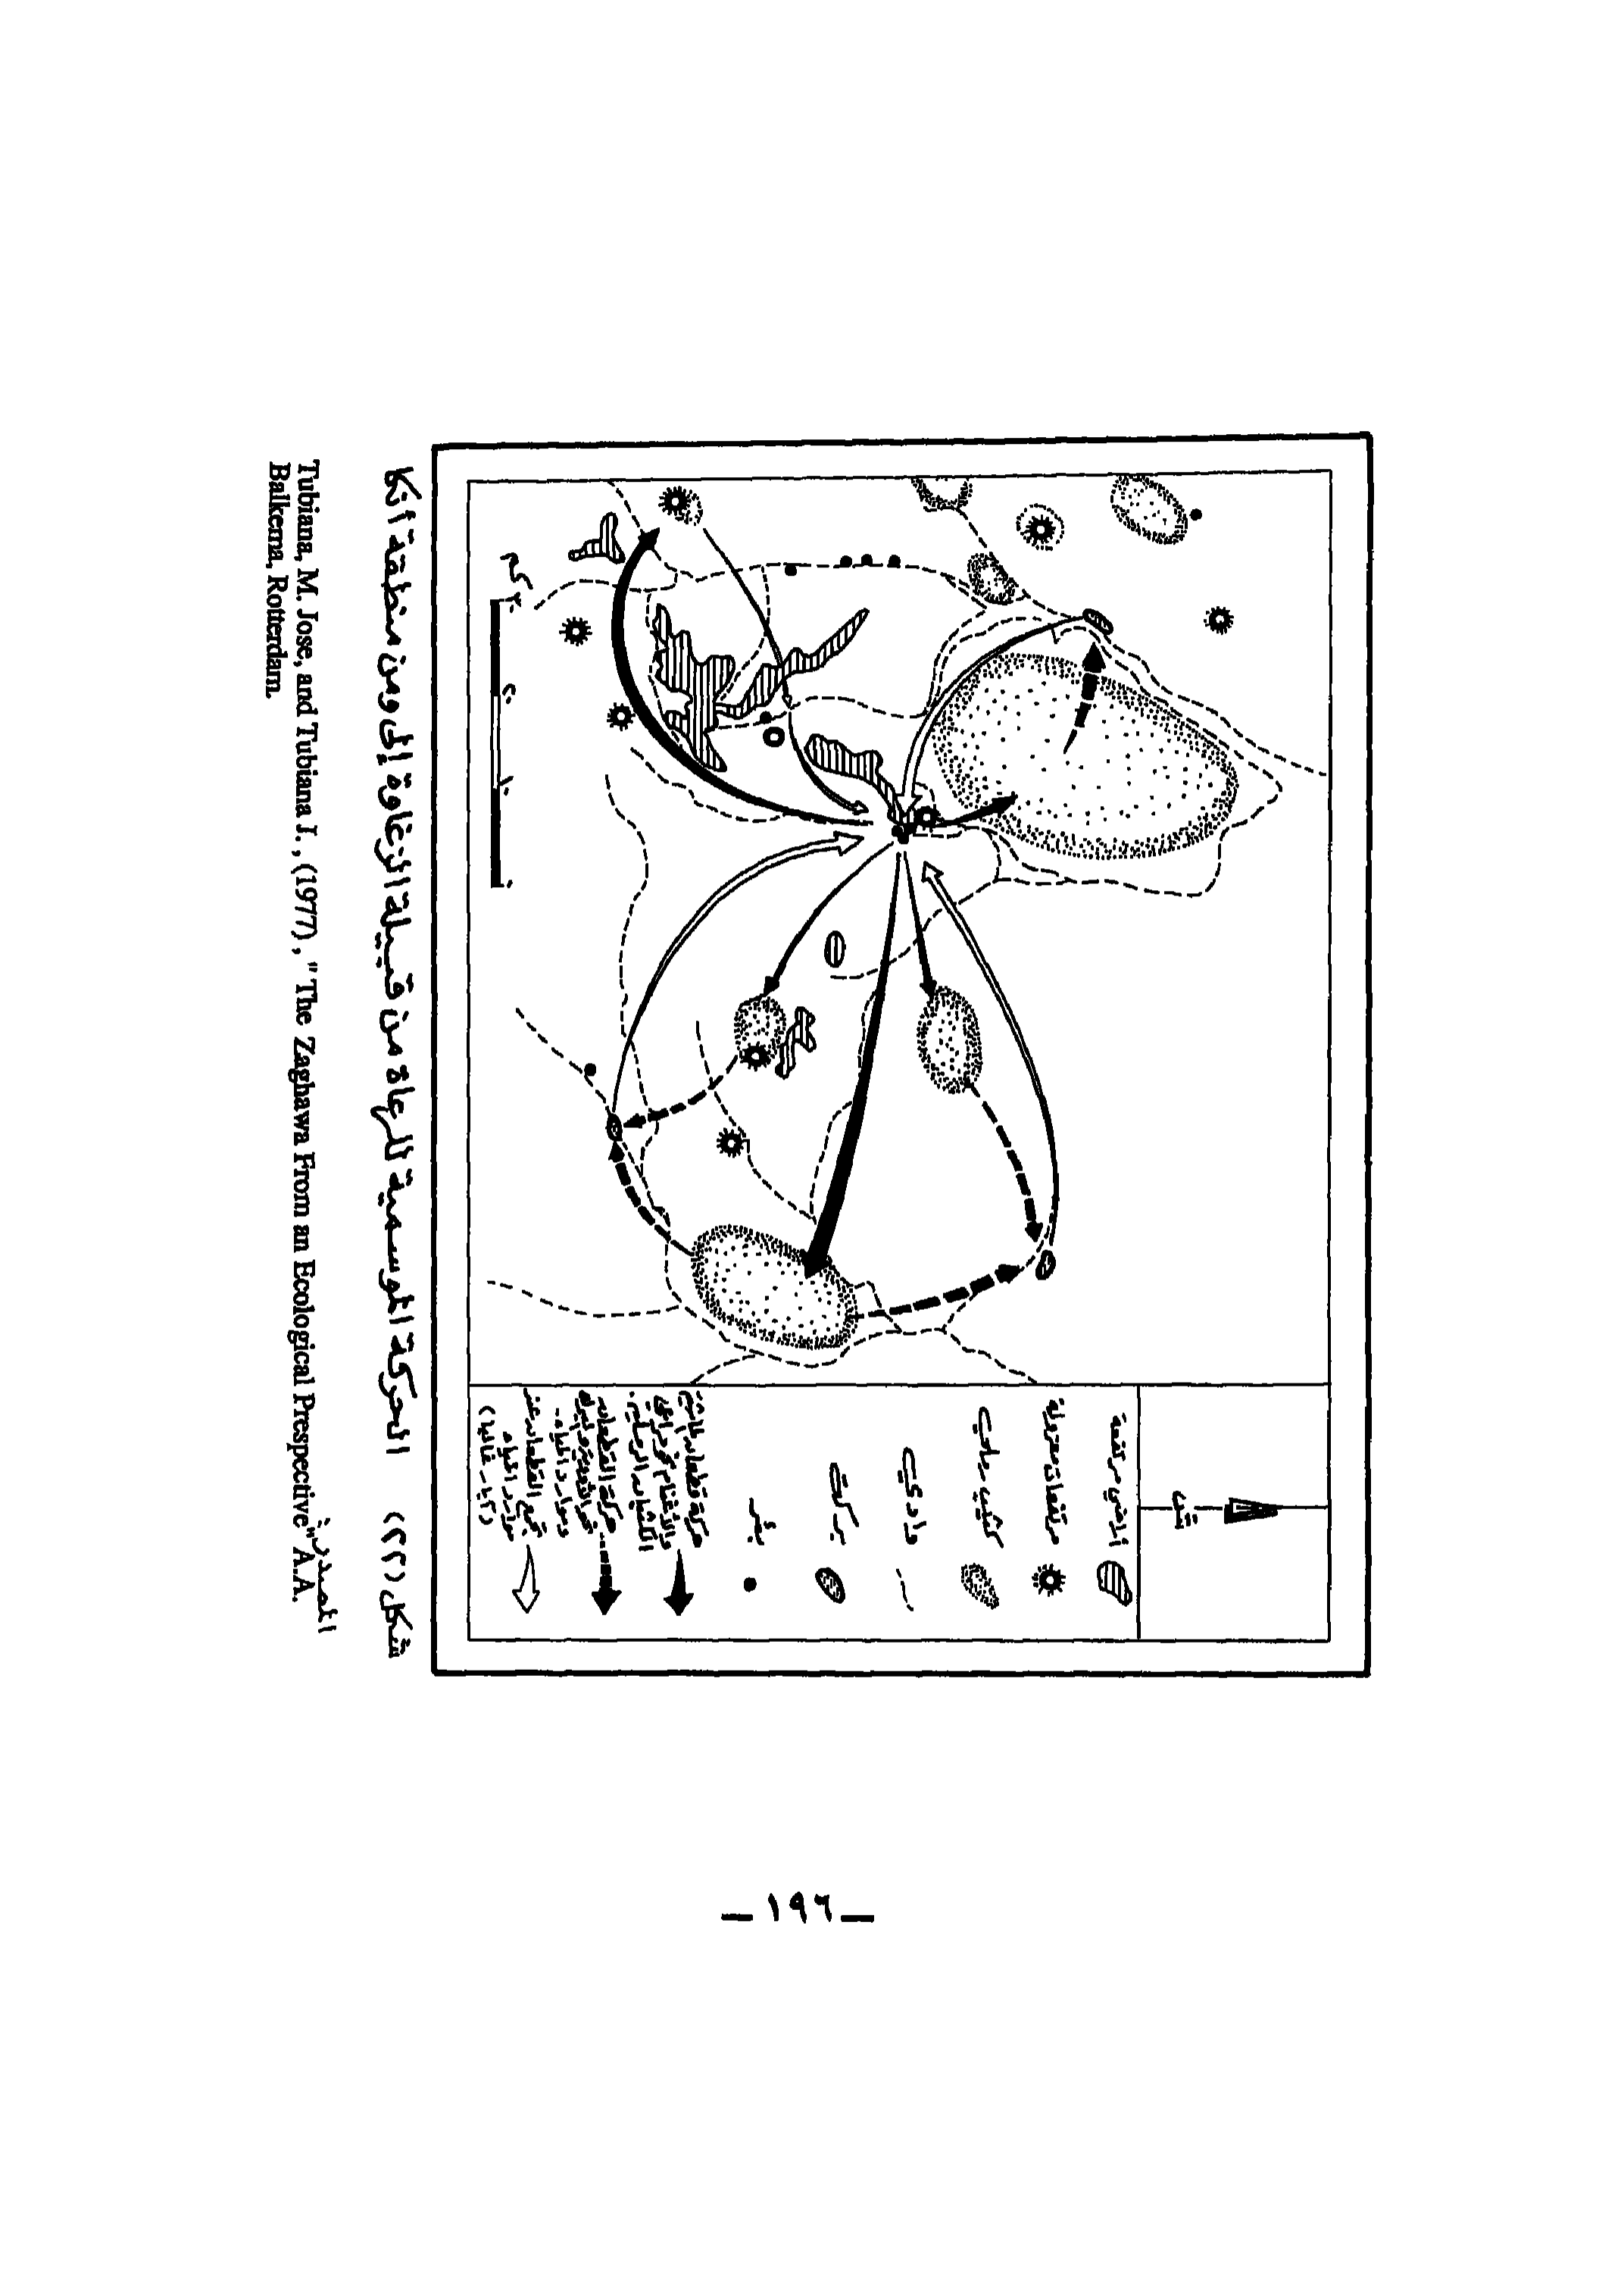 ش
أراضي مرتفعة
مرتفعات معزولة
كثيب رملي
وادي
بركة
بئر
حركة قطعان الماشية
والأغنام نحو مراعي
الكثبان الرملية.
حركة القطعان
وموارد المياه.
تجمع القطعان عند
موارد المياه
٢٠ كم
١٠
شكل (٢٢) الحركة الموسمية للرعاة من قبيلة الزغاوة إلى ومن منطقة أنكا
المصدر:
Tubiana, M. Jose, and Tubiana I., (1977), "The Zaghawa From an Ecological Prespective" A.A.
Balkema, Rotterdam.
ـ ١٩٦ ـ